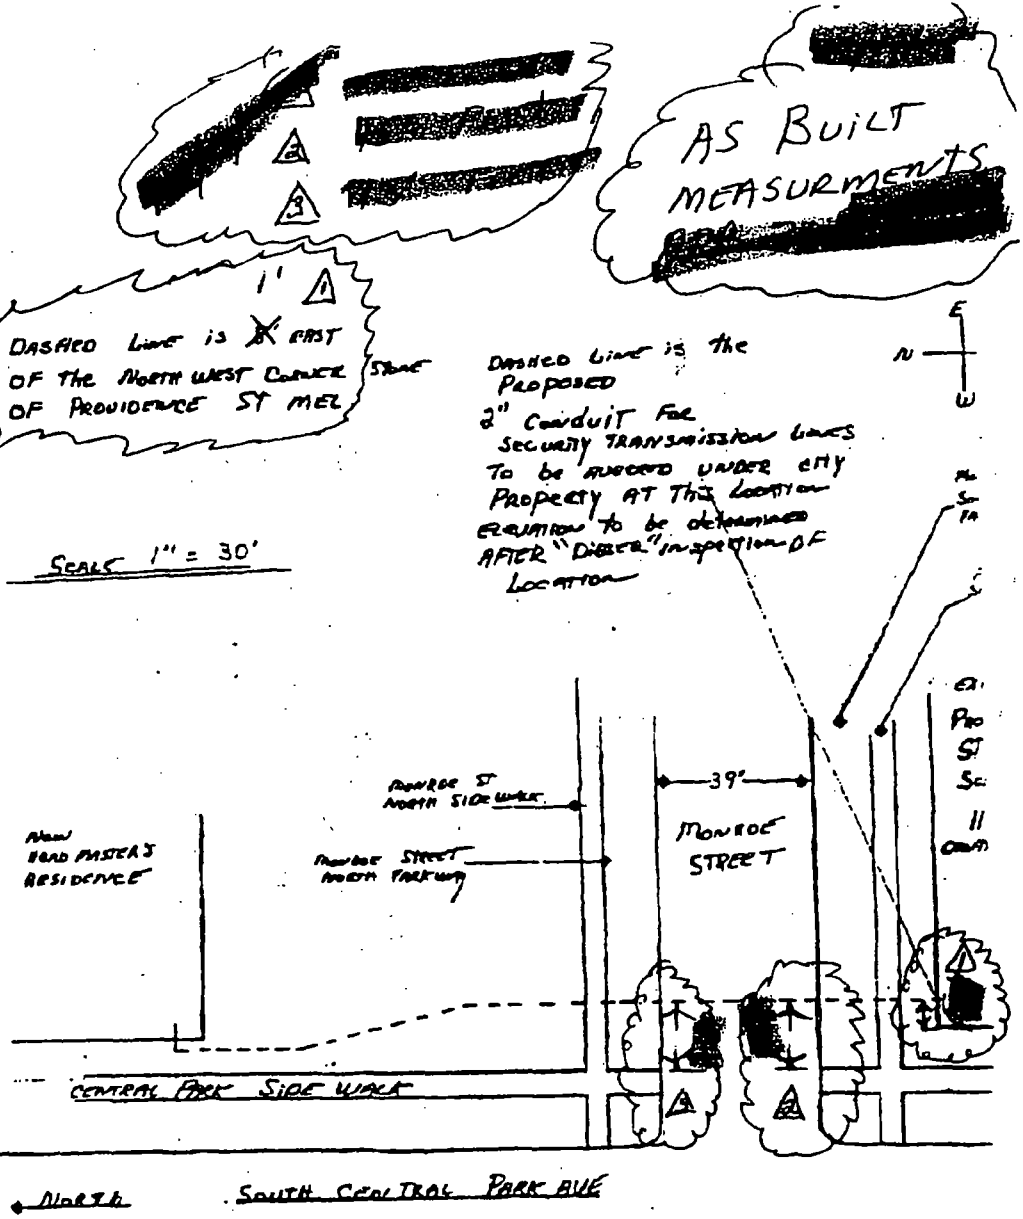 2
3
AS BUILT
MEASURMENTS
1' 1
DASHED LINE is 8' EAST
OF The NORTH WEST CORNER STONE
OF PROVIDENCE ST MEL
DASHED LINE is the
PROPOSED
2" CONDUIT FOR
SECURITY TRANSMISSION LINES
To be AUGERED UNDER CITY
PROPERTY AT This LOCATION
ELEVATION to be determined
AFTER "DIGGER" inspection OF
LOCATION
E
N
W
SCALE 1" = 30'
EXI
PRO
ST
SC
MONROE ST
NORTH SIDE WALK
39'
MONROE
STREET
MONROE STREET
NORTH PARKWAY
NEW
HEAD MASTER'S
RESIDENCE
1
3
2
CENTRAL PARK SIDE WALK
NORTH
SOUTH CENTRAL PARK AVE